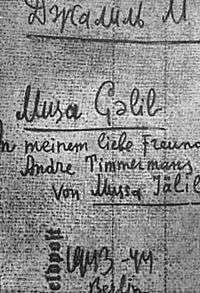 Джалиль М.
Musa Gəlil
In meinem liebe Freund
Andre Timmermans
Von Musa Jälil
1943-44
Berlin